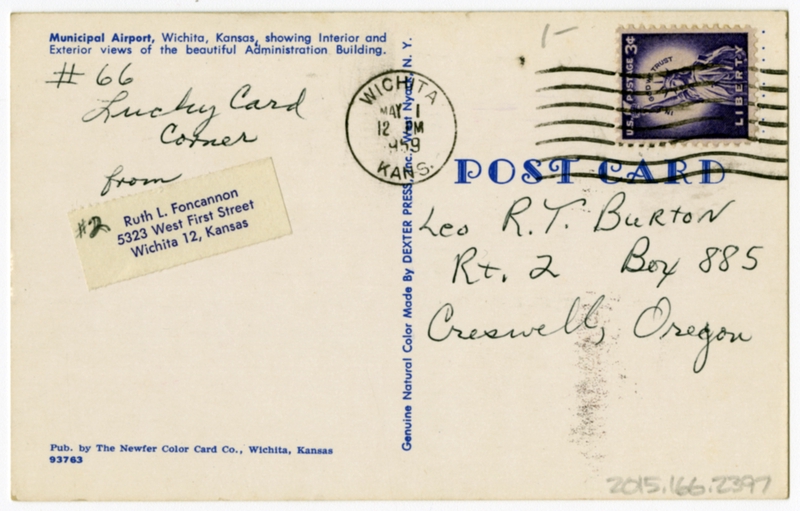 Municipal Airport, Wichita, Kansas, showing Interior and
Exterior views of the beautiful Administration Building.
# 66
Lucky Card
Corner
from
#2
Ruth L. Foncannon
5323 West First Street
Wichita 12, Kansas
Pub. by The Newfer Color Card Co., Wichita, Kansas
93763
Genuine Natural Color Made By DEXTER PRESS, Inc. West Nyack, N. Y.
1-
WICHITA
MAY
12 PM
1959
KANS.
U.S. POSTAGE 3¢
IN GOD WE TRUST
LIBERTY
POST CARD
Leo R.T. Burton
Rt. 2 Box 885
Creswell, Oregon
2015.166.2397